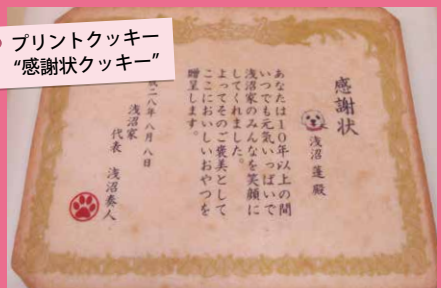 プリントクッキー
“感謝状クッキー”
感謝状
浅沼 蓮 殿
あなたは１０年以上の間
いつでも元気いっぱいで
浅沼家のみんなを笑顔に
してくれました。
よってそのご褒美として
ここにおいしいおやつを
贈呈します。
成二八年八月八日
浅沼家
代表 浅沼奏人